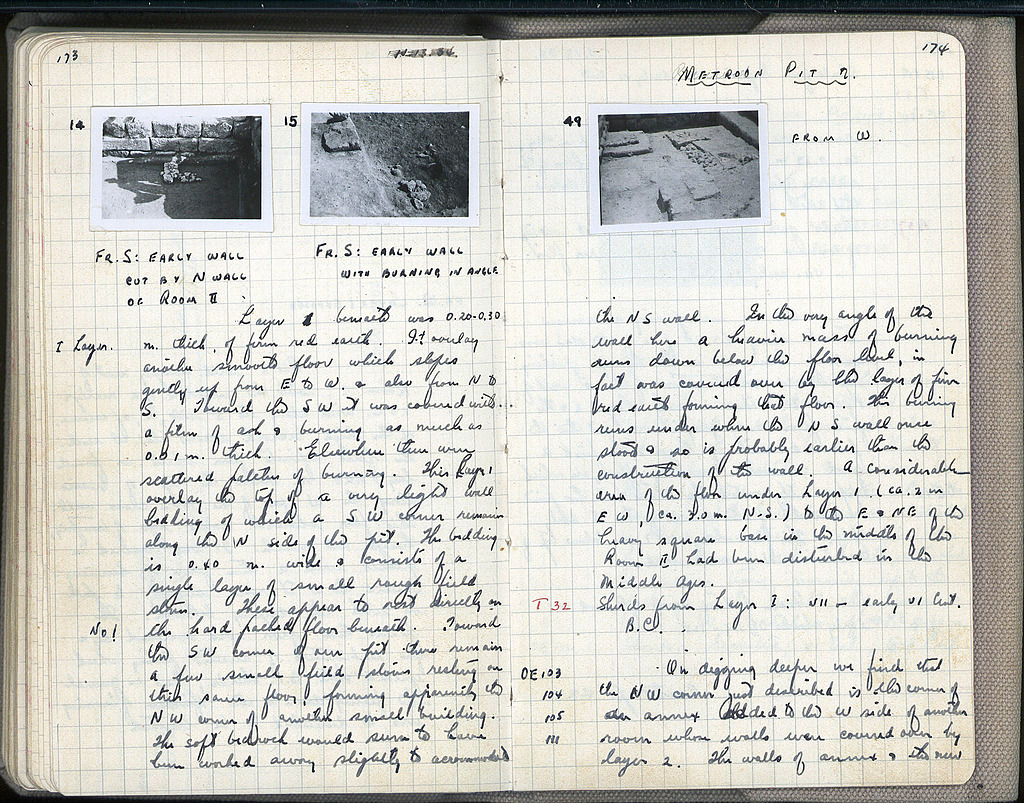 173
14
15
FR. S: EARLY WALL
CUT BY N WALL
OF ROOM II
FR. S: EARLY WALL
WITH BURNING IN ANGLE
Layer 1 beneath was 0.20-0.30
I Layer. m. thick, of firm red earth. It overlay
another smooth floor which slopes
gently up from E to W. & also from N to
S. Toward the SW it was covered with
a film of ash & burning as much as
0.01 m. thick. Elsewhere there were
scattered patches of burning. This Layer 1
overlay the top of a very light wall
bedding of which a SW corner remains
along the N side of the pit. The bedding
is 0.40 m. wide & consists of a
single layer of small rough field
stones. These appear to rest directly on
No! the hard packed floor beneath. Toward
the SW corner of our pit there remain
a few small field stones resting on
this same floor, forming apparently the
NW corner of another small building.
The soft bedrock would seem to have
been worked away slightly to accommodate
174
METROON PIT
49
FROM W.
the NS wall. In the very angle of the
wall here a heavier mass of burning
runs down below the floor level, in
fact was covered over by the layer of firm
red earth forming that floor. This burning
runs under where the NS wall once
stood & so is probably earlier than the
construction of the wall. A considerable
area of the floor under Layer 1 (ca. 2 m
EW, ca. 3.0 m. N-S.) to the E & NE of the
heavy square base in the middle of the
Room II had been disturbed in the
Middle Ages.
T 32 Sherds from Layer I: VII - early VI Cent.
B.C.
OE 103 On digging deeper we find that
104 the NW corner just described is the corner of
105 an annex added to the W side of another
111 room whose walls were covered over by
Layer 2. The walls of annex & the new